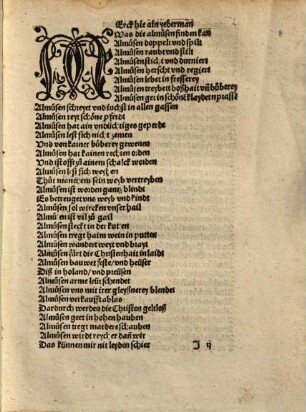 MErck hie ain yederman
Was die almůsen finden kan
Almůsen doppelt vnd spilt
Almůsen raubt vnd stilt
Almůsen sticht vnd durniert
Almůsen herscht vnd regiert
Almůsen lebet in fresserey
Almůsen treybett hoßhait vñ bůberey
Almůsen get in schöne klaydern
Almůsen schreyet vnd iuchst in allen gassen
Almůsen reyt schöne pferdt
Almůsen hat ain vndüchtiges geperde
Almůsen lest sich nicht zemen
Vnd von kainer bůberey gewenen
Almůsen hat kainen rechten orden
Vnd ist offt zů ainem schalck worden
Almůsen lest sich weyhen
Thůt manchem sein weyb vertreyben
Almůsen ist worden gantz blendt
Es betreuget vns weyb vnd kindt
Almůsen sol wircken vnser hail
Almůsen ist vil zů gail
Almůsen steckt in der kutten
Almůsen tregt haim wein in putten
Almůsen wandert weyt vnd brayt
Almůsen fürt die Christenhait in laidt
Almůsen bauwet feste/ vnd heüser
Diß in holand/ vnd preüssen
Almůsen arme leüt schendet
Almůsen vns mit irer gleyßnerey blendet
Almůsen verkaufft ablas
Dardurch werdes die Christen geltloß
Almůsen geet in hohen hauben
Almůsen tregt mardere schauben
Almůsen wirdt reycher dañ wir
Das künnen mir mit leyden schier
J ij